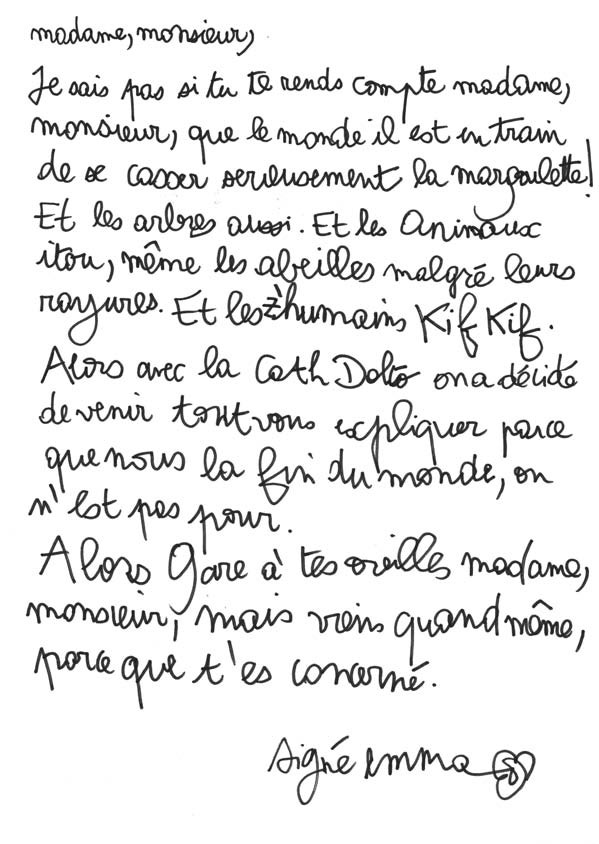 madame, monsieur,
Je sais pas si tu te rends compte madame,
monsieur, que le monde il est en train
de se casser serieusement la margoulette!
Et les arbres aussi. Et les Animaux
itou, même les abeilles malgré leurs
rayures. Et les z'humains Kif Kif.
Alors avec la Cath Dolto on a décidé
de venir tout vous expliquer parce
que nous la fin du monde, on
n'est pas pour.
Alors Gare à tes oreilles madame,
monsieur, mais viens quand même,
parce que t'es concerné.
signé emma